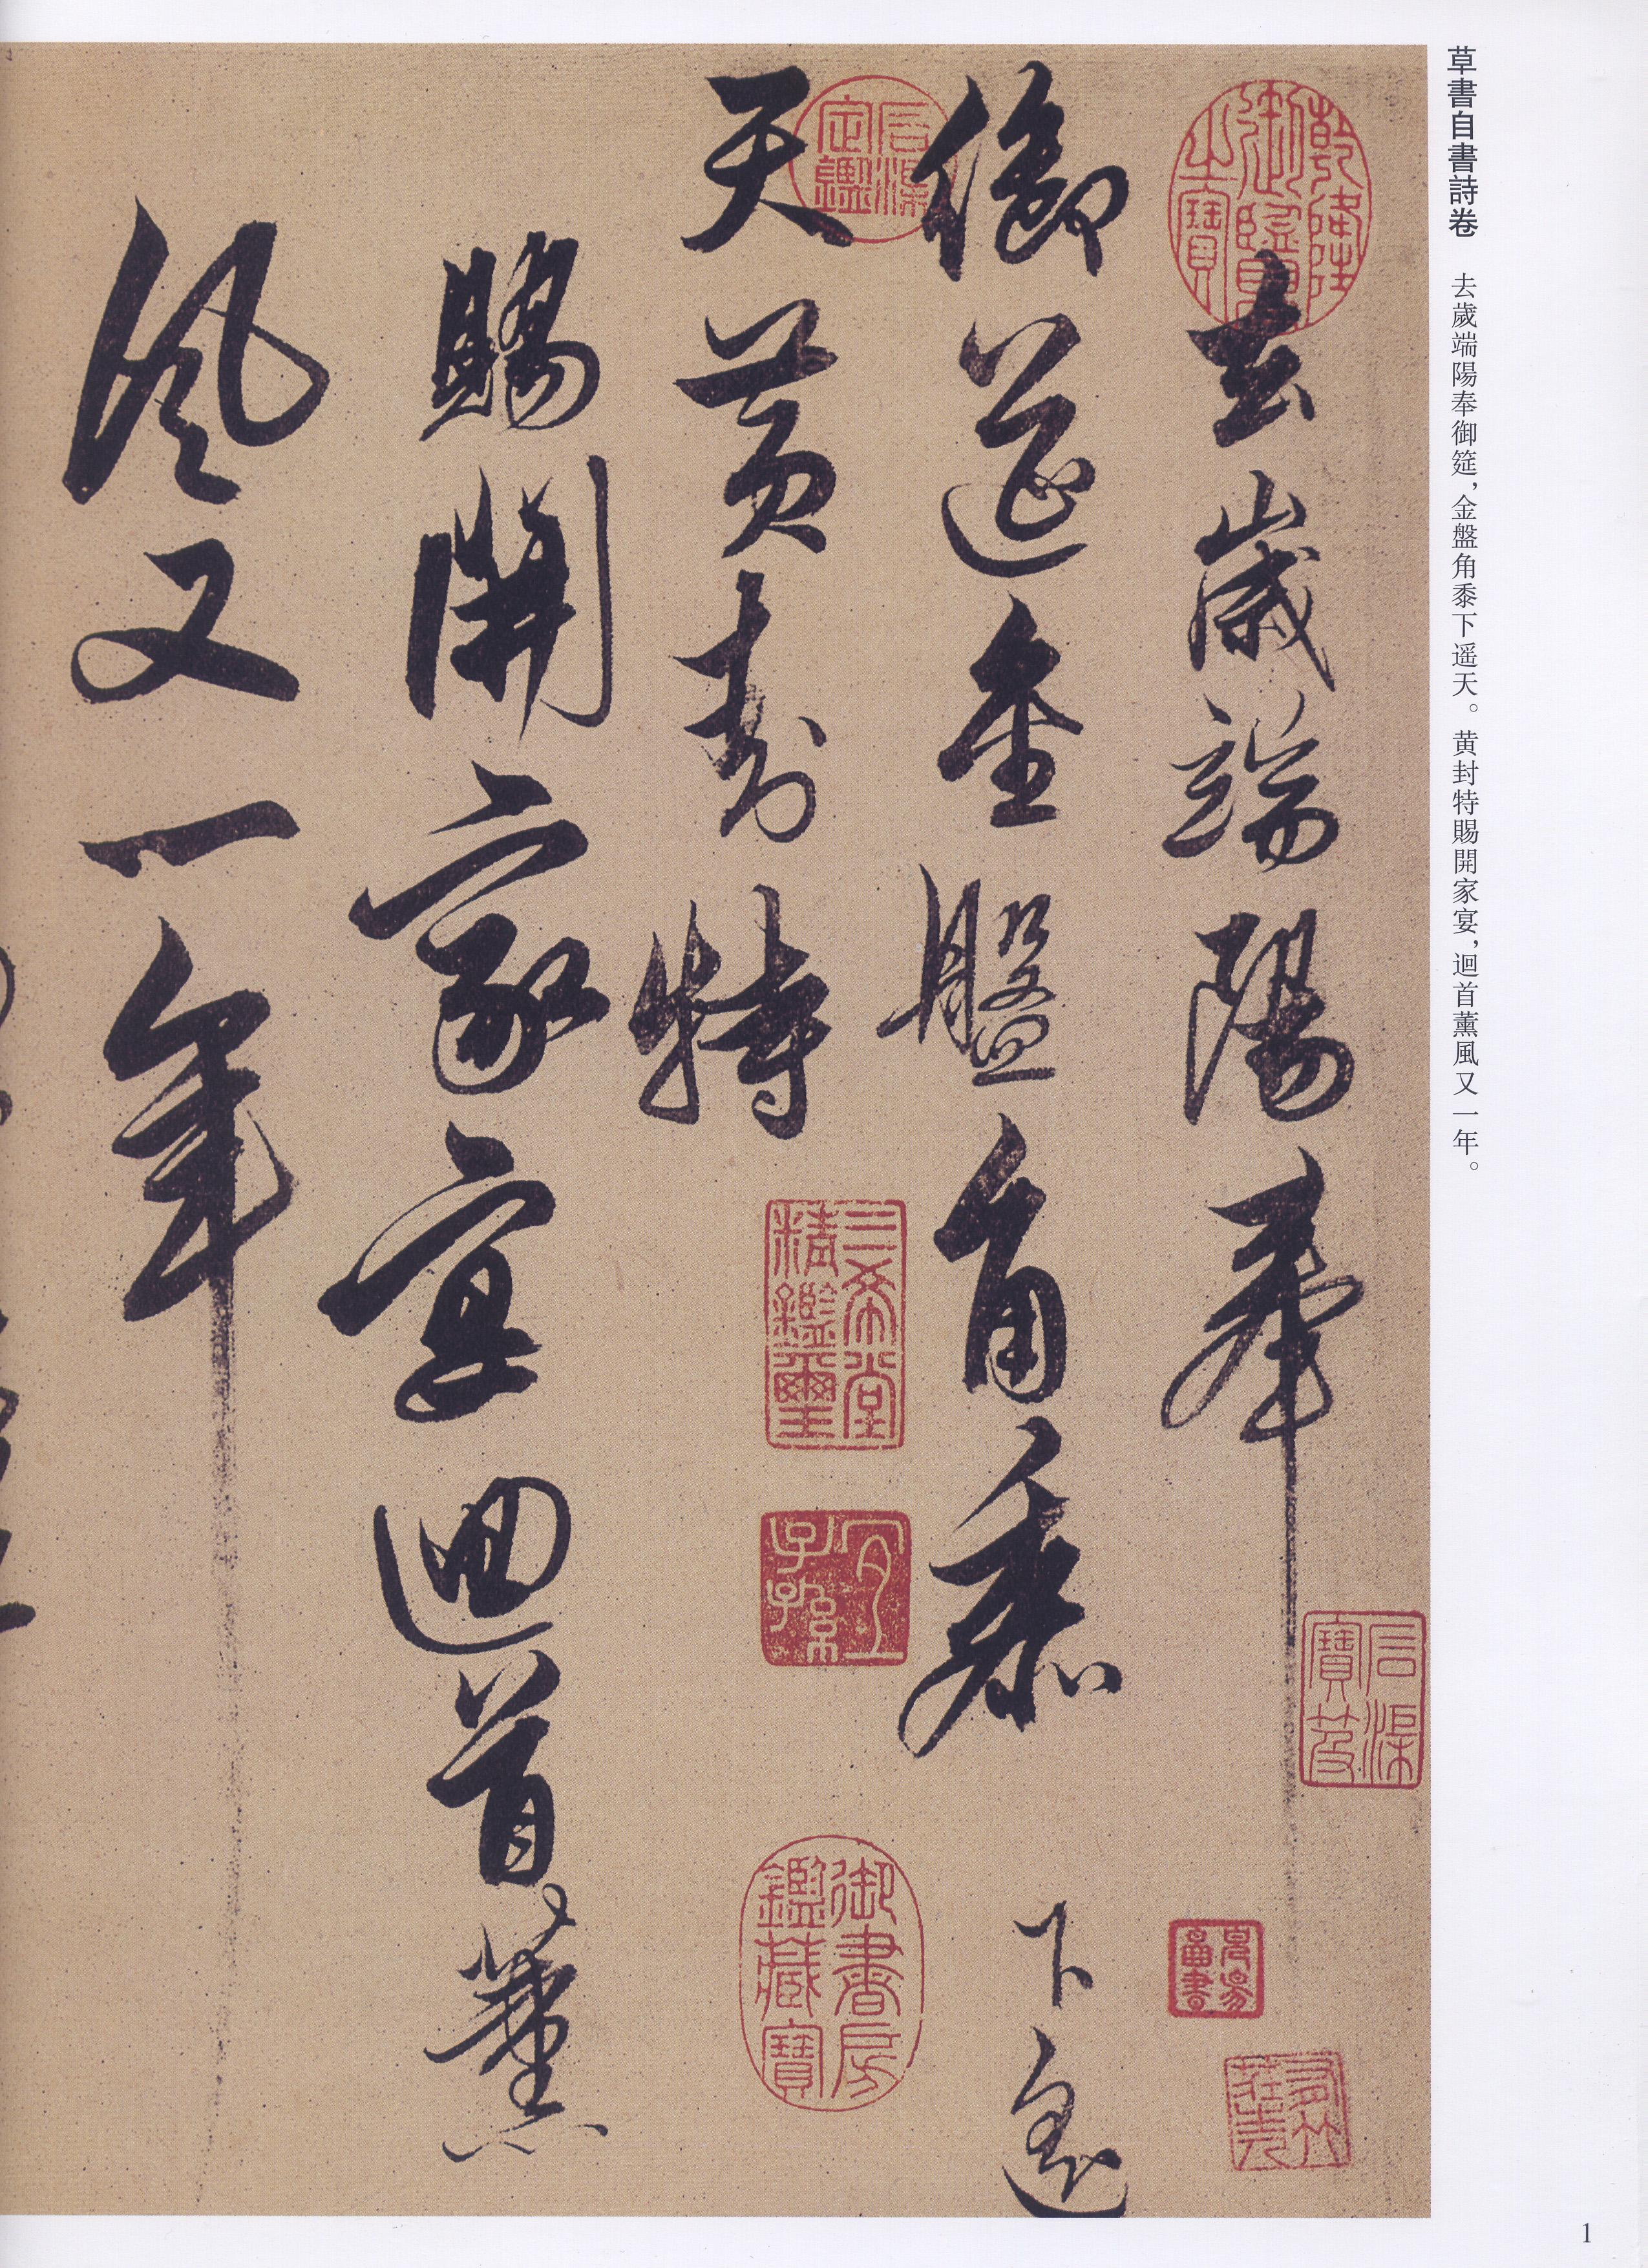 草書自書詩卷
去歲端陽奉御筵，金盤角黍下遥天。黄封特賜開家宴，迴首薰風又一年。
去歲端陽奉
御筵金盤角黍下遥
天黄封特
賜開家宴迴首薰
風又一年
乾隆御覽之寶
石渠定鑑
三希堂精鑑璽
宜子孫
石渠寶笈
御書房鑑藏寶
1